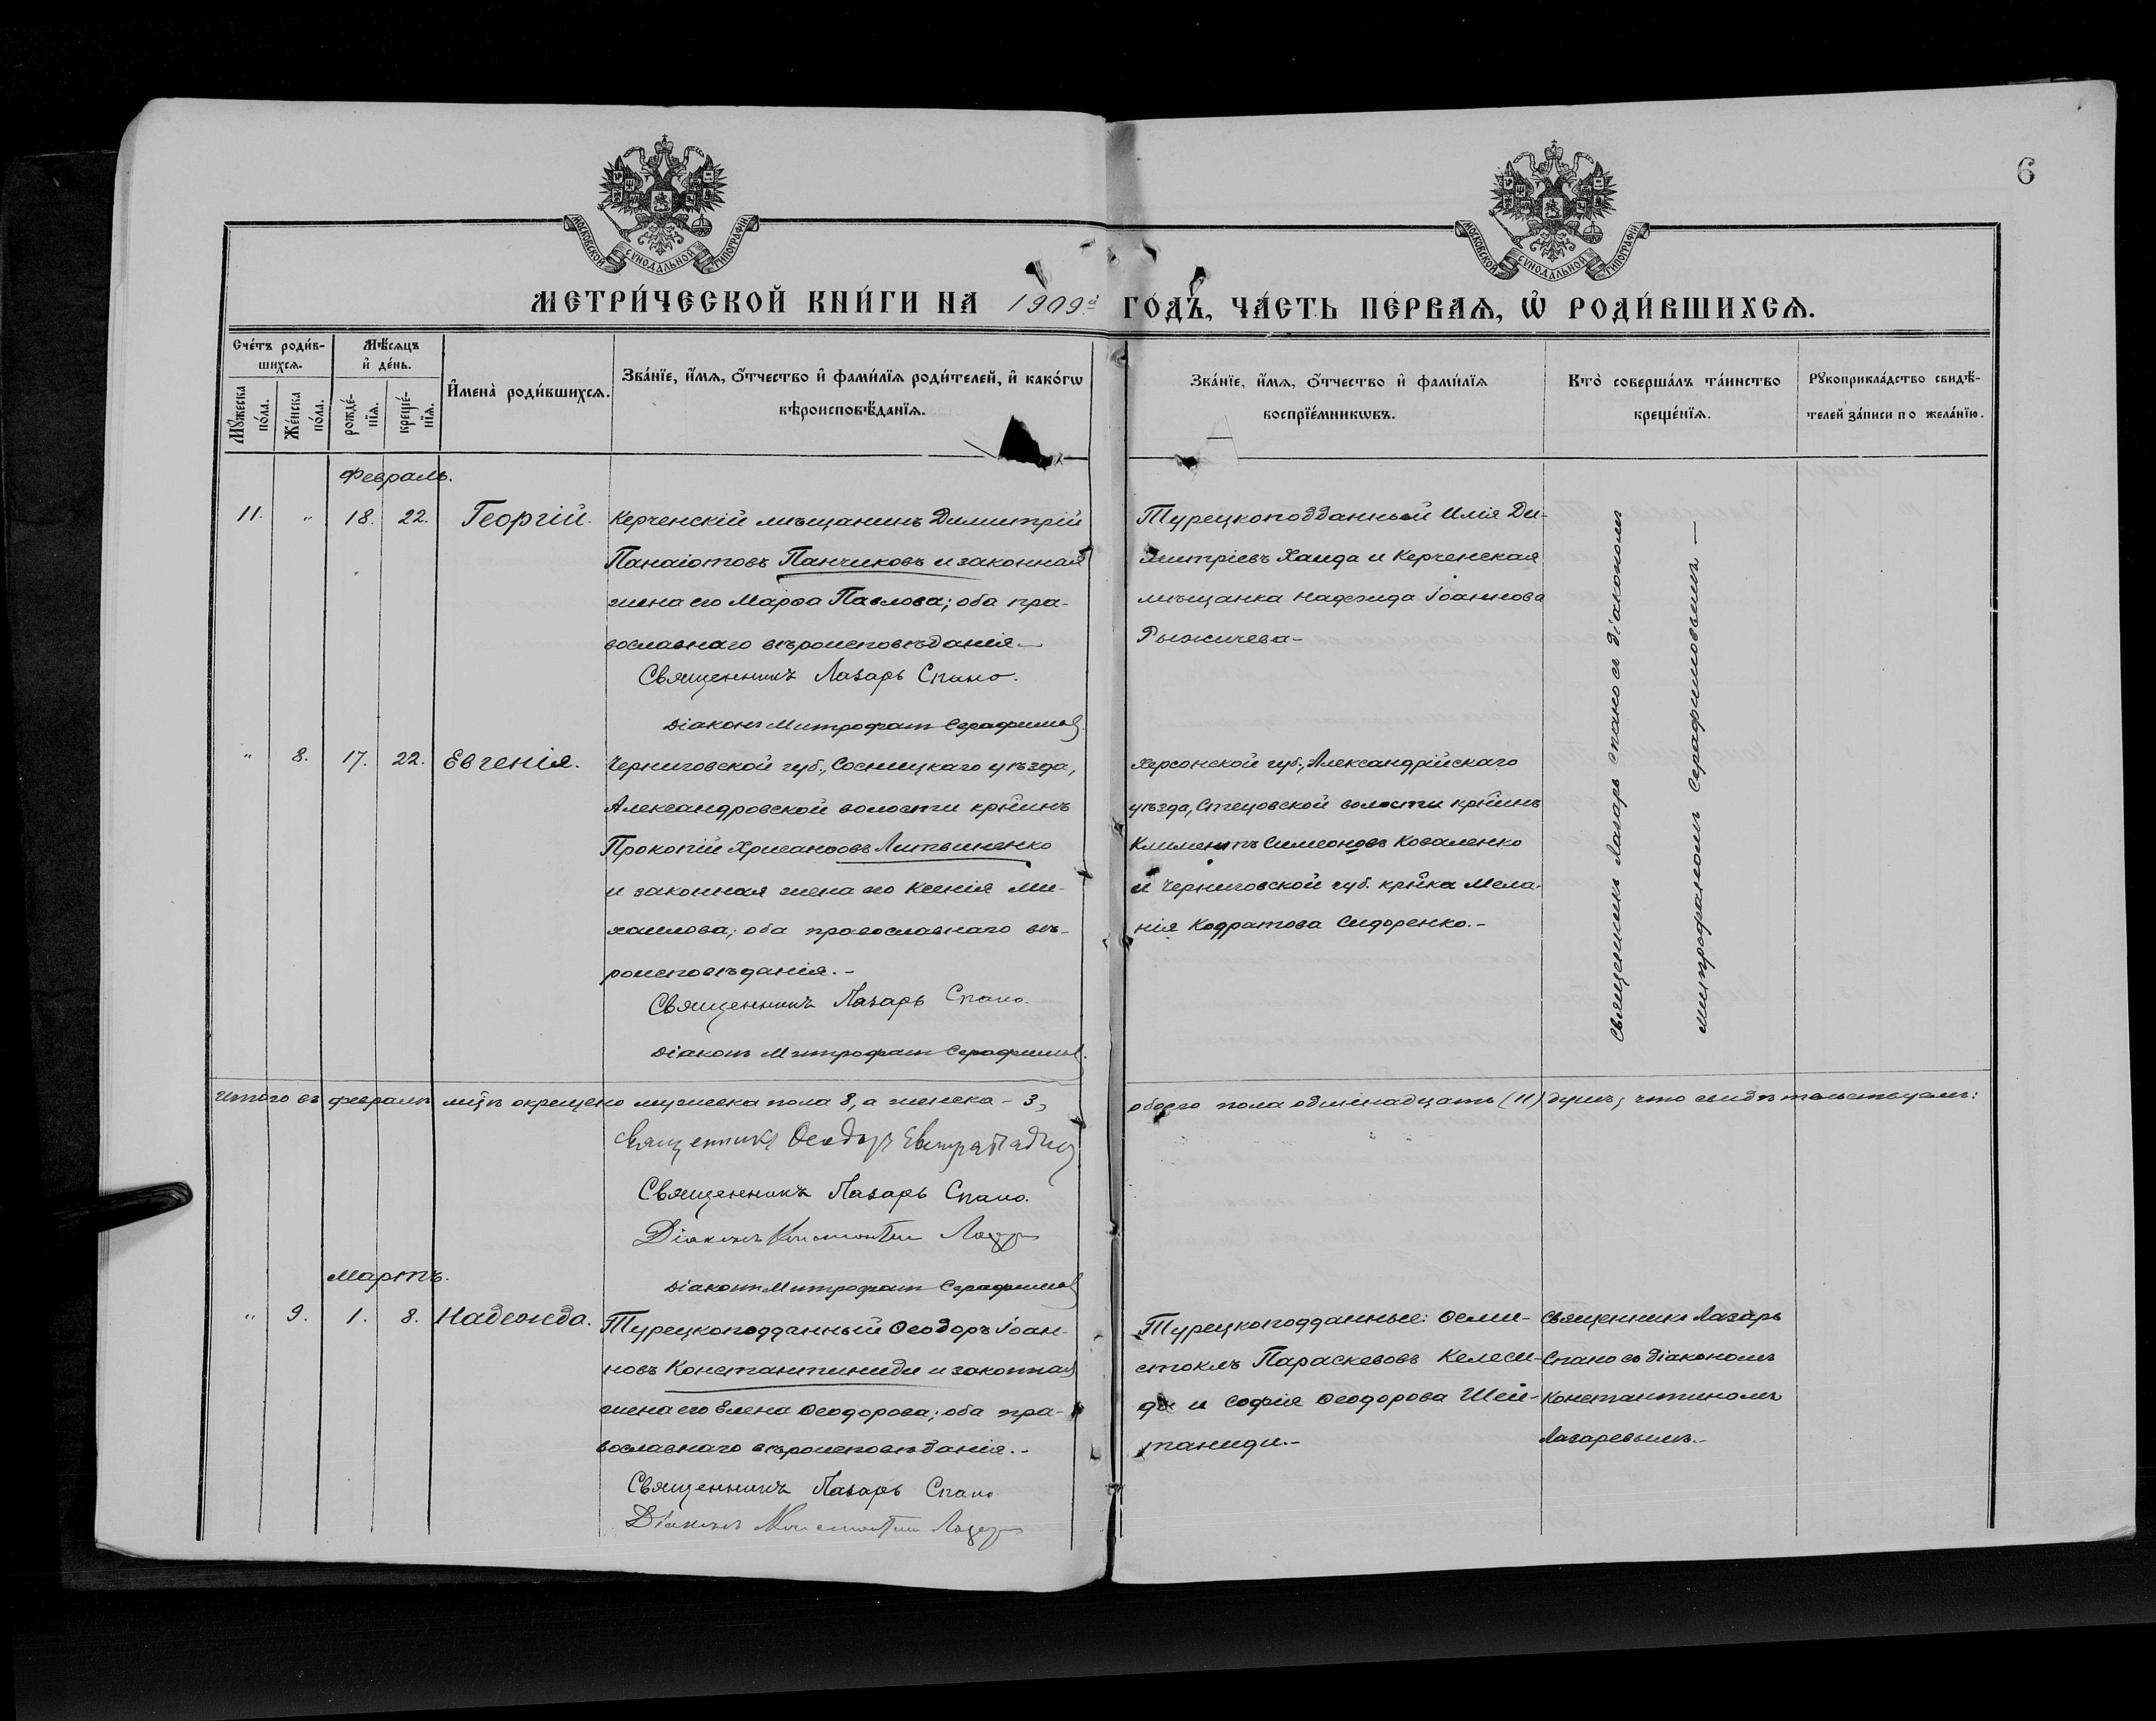 6
МОСКОВСКОЙ СѴНОДАЛЬНОЙ ТИПОГРАФІИ
МОСКОВСКОЙ СѴНОДАЛЬНОЙ ТИПОГРАФІИ
МЕТРИ́ЧЕСКОЙ КНИ́ГИ НА 1909й ГО́ДЪ, ЧА́СТЬ ПЕ́РВАѦ, Ѡ҆ РОДИ́ВШИХСѦ.
Сче́тъ роди́в-
шихсѧ.
Мꙋ́жеска по́ла.
Же́нска по́ла.
Мѣ́сѧцъ
и҆ де́нь.
рожде́-
нїѧ.
креще́-
нїѧ.
И҆мена̀ роди́вшихсѧ.
Зва́нїе, и҆́мѧ, ѻ҆́тчество и҆ фами́лїѧ роди́телей, и҆ како́гѡ
вѣроисповѣ́данїѧ.
Зва́нїе, и҆́мѧ, ѻ҆́тчество и҆ фами́лїѧ
воспрїе́мникѡвъ.
Кто̀ соверша́лъ та́инство
креще́нїѧ.
Рꙋкоприкла́дство свидѣ́-
телей за́писи по жела́нїю.
Февраль.
11. " 18. 22. Георгій.
Керченскій мѣщанинъ Димитрій
Панаіотовъ Панчиковъ и законная
жена его Марѳа Павлова; оба пра-
вославнаго вѣроисповѣданія.—
Священникъ Лазарь Спано.
Діаконъ Митрофанъ Серафимовъ
Турецкоподданный Илія Ди-
митріевъ Хаида и Керченская
мѣщанка Надежда Іоаннова
Рыжичева-
Священникъ Лазарь Спано съ діакономъ
Митрофаномъ Серафимовымъ —
" 8. 17. 22. Евгенія.
Черниговской губ., Сосницкаго уѣзда,
Александровской волости крнинъ
Прокопій Хрисанѳовъ Литвиненко
и законная жена его Ксенія Ми-
хаилова; оба православнаго вѣ-
роисповѣданія.-
Священникъ Лазарь Спано.
Діаконъ Митрофанъ Серафимовъ.
Херсонской губ., Александрійскаго
уѣзда, Стецовской волости крнинъ
Климентъ Симеоновъ Коваленко
и Черниговской губ. крнка Мела-
нія Кодратова Сидоренко.-
Итого въ февралѣ мцѣ окрещено мужеска пола 8, а женска - 3, обоего пола одиннадцать (11) душъ, что свидѣтельствуемъ:
Священникъ Ѳеодоръ
Священникъ Лазарь Спано.
Діаконъ Константинъ
Діаконъ Митрофанъ Серафимовъ
Мартъ.
" 9. 1. 8. Надежда.
Турецкоподданный Ѳеодоръ Іоан-
новъ Константиниди и законная
жена его Елена Ѳеодорова; оба пра-
вославнаго вѣроисповѣданія.-
Священникъ Лазарь Спано
Діаконъ Константинъ
Турецкоподданные: Ѳеми-
стоклъ Параскевовъ Келеси-
ди и Софія Ѳеодорова Шей-
таниди.-
Священникъ Лазарь
Спано съ діакономъ
Константиномъ
Лазаревымъ.-